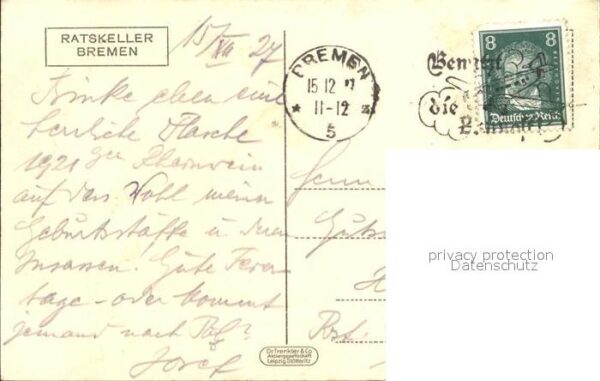 RATSKELLER
BREMEN
15/XII 27
BREMEN
15 12 27
11-12
* *
5
8 8
Deutsches Reich
Benutzt
die
Trinke eben eine
herrliche Flasche
1921 ger Rheinwein
auf das Wohl meiner
Geburtsstätte u deren
Insassen! Gute Feier-
tage - oder kommt
jemand nach
Josef
Herrn
Guts
H
Post
privacy protection
Datenschutz
Dr Trenkler & Co
Aktiengesellschaft
Leipzig-Stötteritz